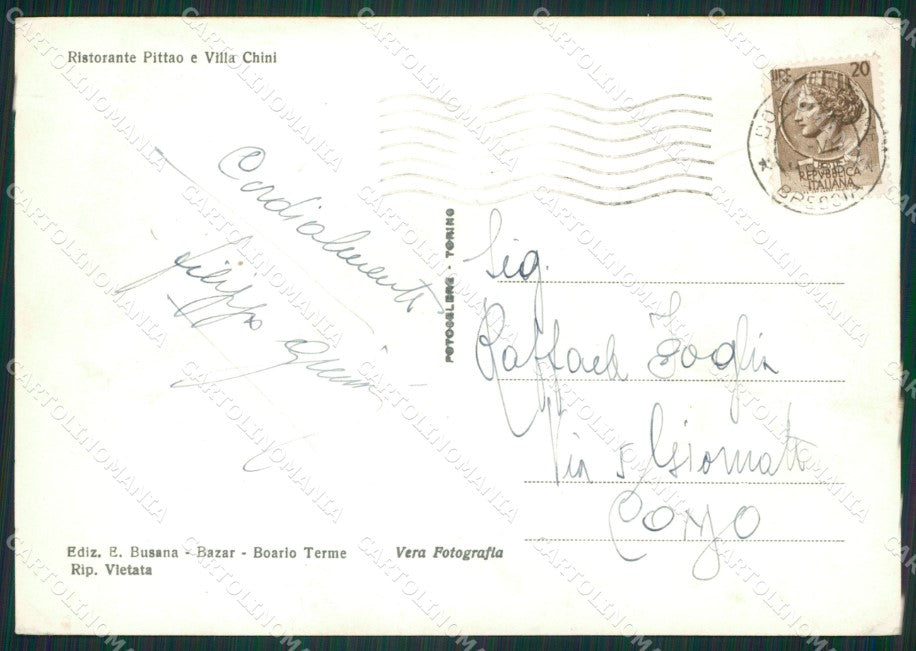 Ristorante Pittao e Villa Chini
LIRE 20
REPVBBLICA
ITALIANA
BRESCIA
Cordialmente
Filippo
FOTOCELERE - TORINO
Sig.
Raffaele Foglia
Via 5 Giornate
Como
Ediz. E. Busana - Bazar - Boario Terme
Rip. Vietata
Vera Fotografia
CARTOLINOMANIA